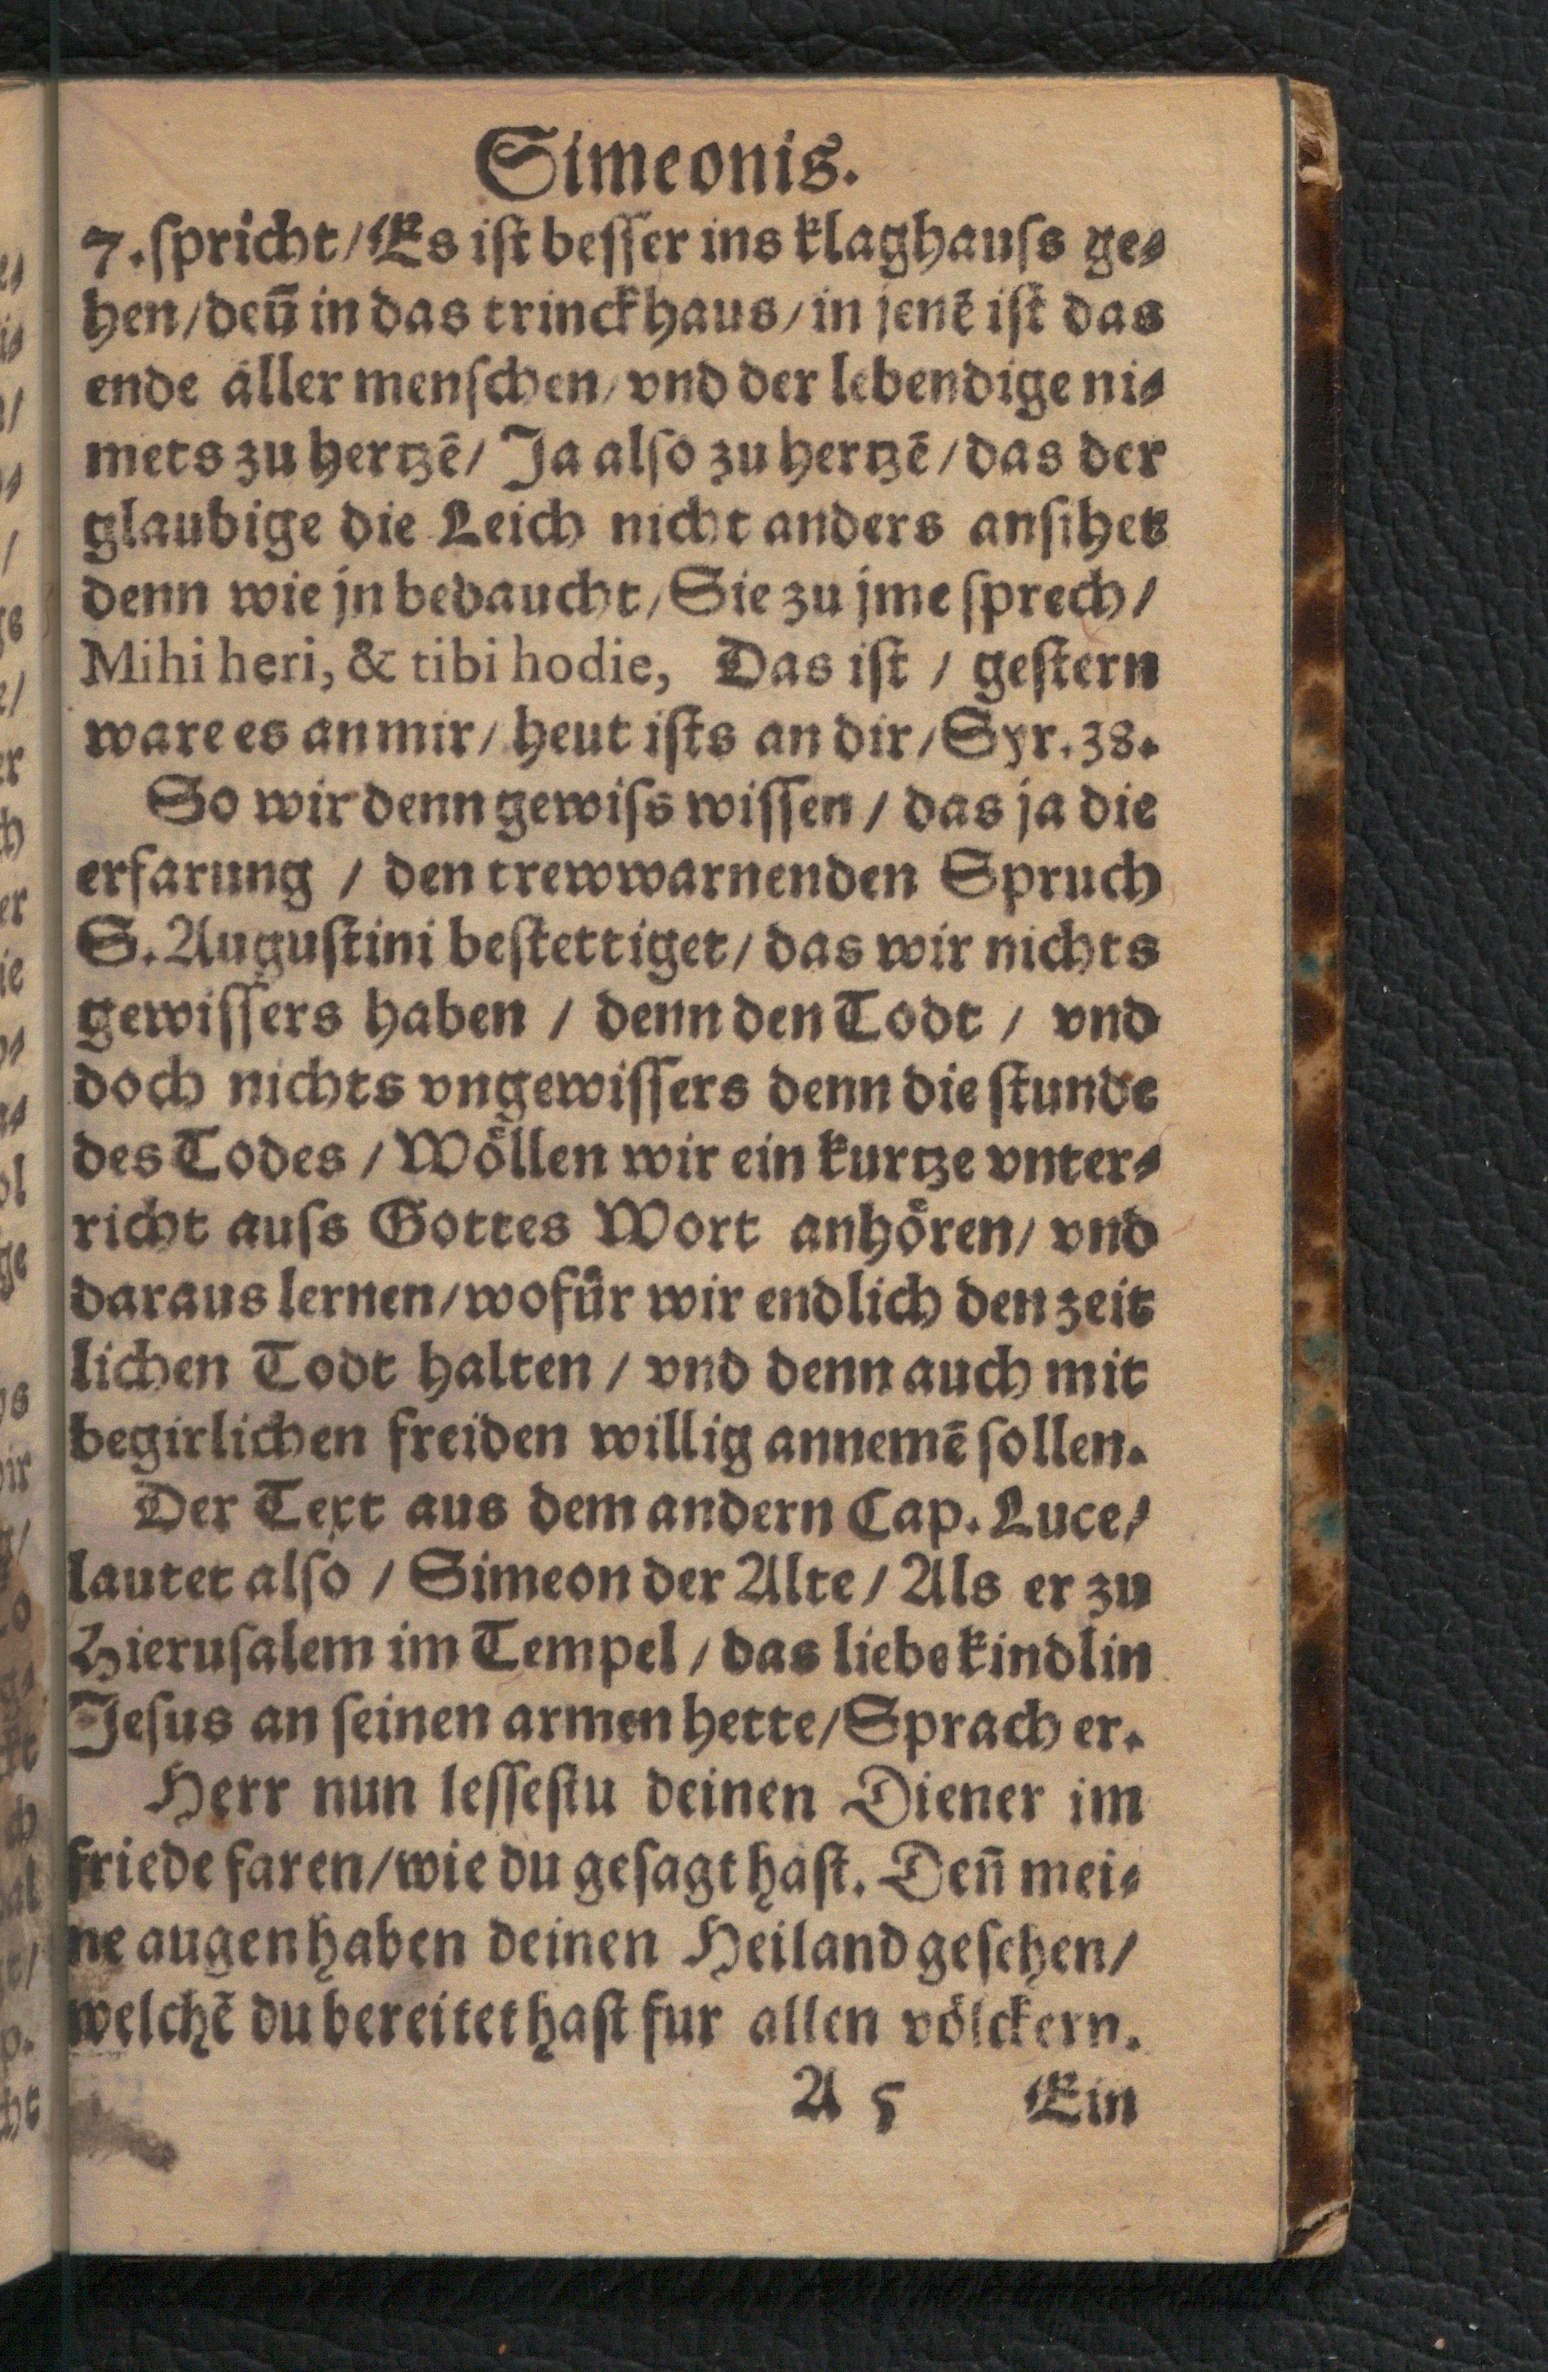 Simeonis.
7. ſpricht/ Es iſt beſſer ins klaghauſs ge⸗
hen/ deñ in das trinckhaus/ in jenē iſt das
ende aller menſchen/ vnd der lebendige ni⸗
mets zu hertzē/ Ja alſo zu hertzē/ das der
glaubige die Leich nicht anders anſihet
denn wie jn bedaucht/ Sie zu jme ſprech/
Mihi heri, & tibi hodie, Das iſt / geſtern
ware es an mir/ heut iſts an dir/ Syr. 38.
So wir denn gewiſs wiſſen / das ja die
erfarung / den trewwarnenden Spruch
S. Auguſtini beſtettiget/ das wir nichts
gewiſſers haben / denn den Todt / vnd
doch nichts vngewiſſers denn die ſtunde
des Todes / Wöllen wir ein kurtze vnter⸗
richt auſs Gottes Wort anhören/ vnd
daraus lernen/ wofür wir endlich den zeit
lichen Todt halten / vnd denn auch mit
begirlichen freiden willig annemē ſollen.
Der Text aus dem andern Cap. Luce/
lautet alſo / Simeon der Alte / Als er zu
Hieruſalem im Tempel / das liebe kindlin
Jeſus an ſeinen armen hette/ Sprach er.
Herr nun leſſeſtu deinen Diener im
friede faren/ wie du geſagt haſt. Deñ mei⸗
ne augen haben deinen Heiland geſehen/
welchē du bereitet haſt fur allen völckern.
A 5 Ein